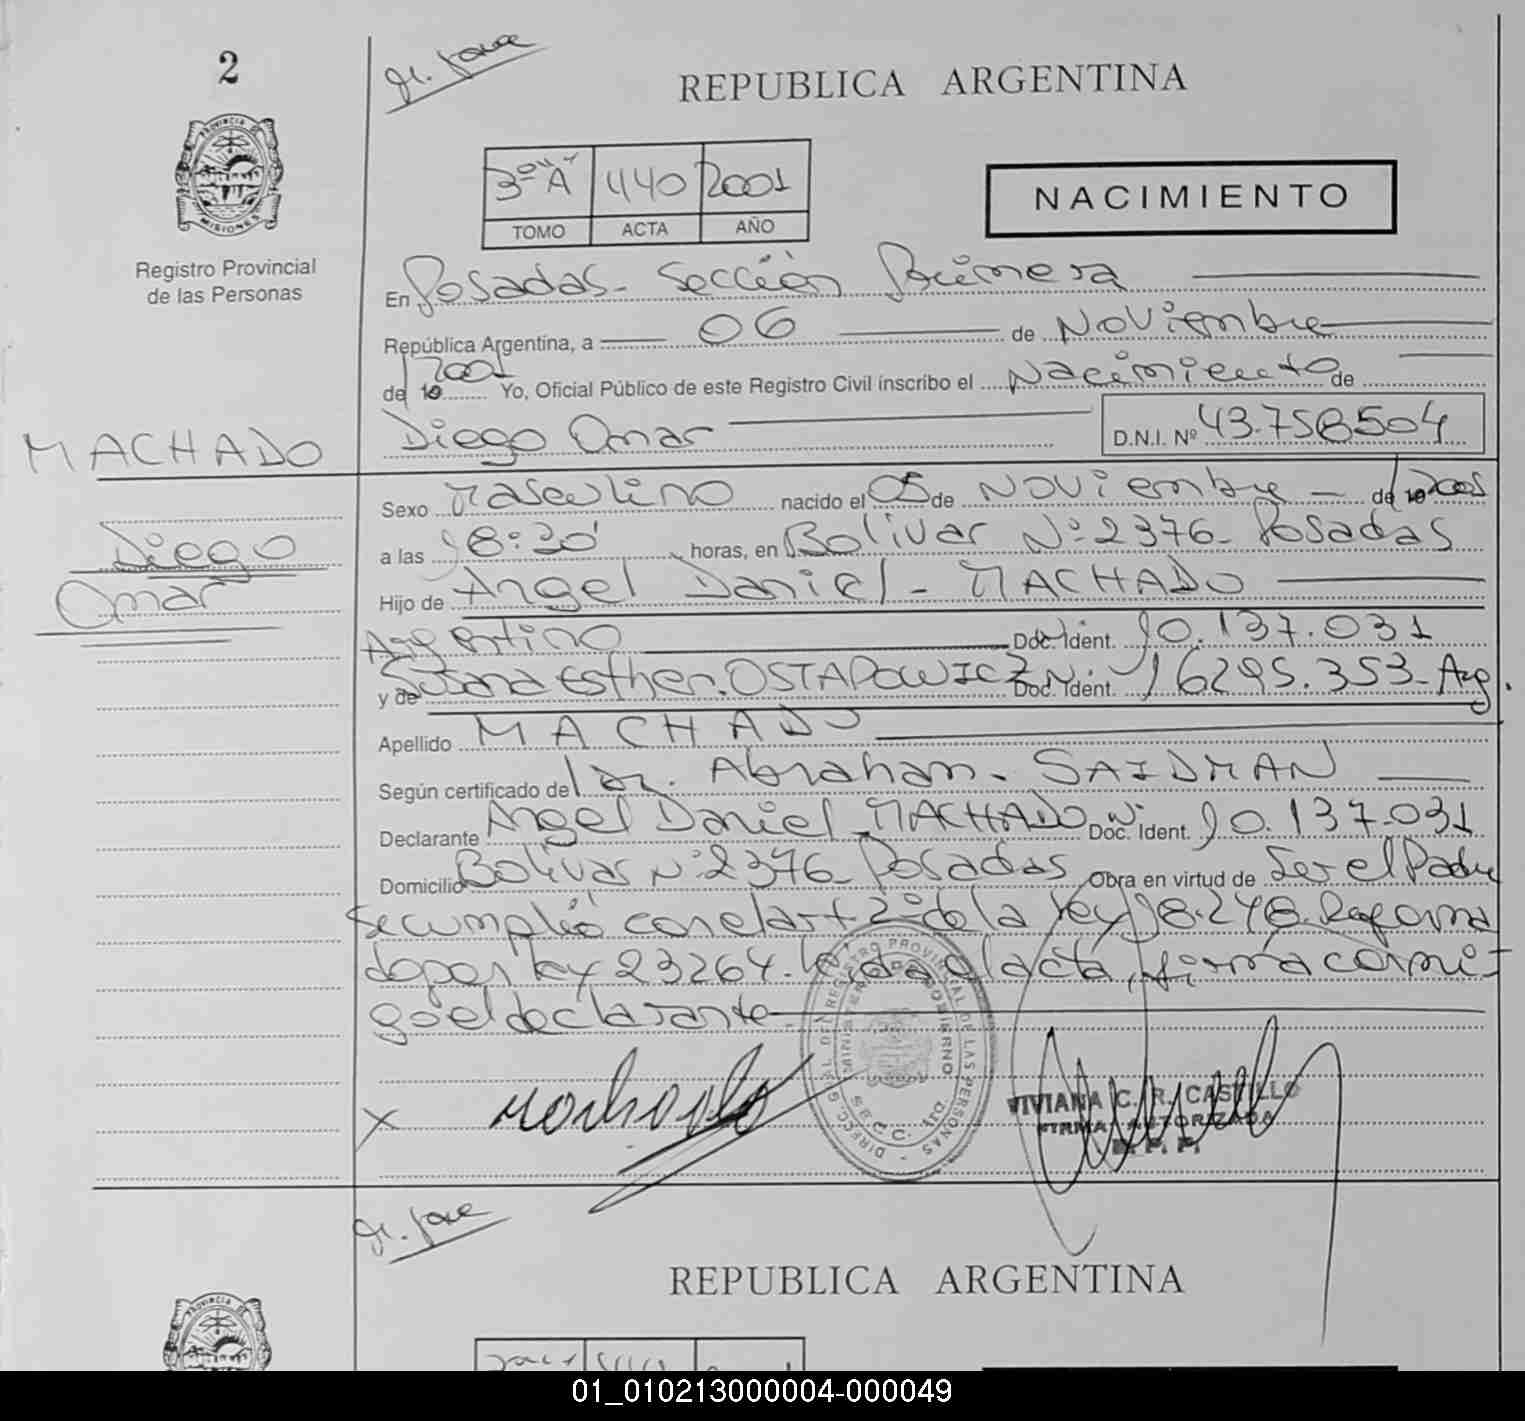 2
REPUBLICA ARGENTINA
PROVINCIA DE
MISIONES
Registro Provincial
de las Personas
3º "A" 440 2001
TOMO ACTA AÑO
NACIMIENTO
En Posadas - Sección Primera
República Argentina, a 06 de Noviembre
de 2001 Yo, Oficial Público de este Registro Civil inscribo el Nacimiento de
MACHADO
Diego Omar
D.N.I. Nº 43.758504
Diego
Omar
Sexo Masculino nacido el 05 de Noviembre - de 2001
a las 18:30' horas, en Bolivar Nº 2376 - Posadas
Hijo de Angel Daniel - MACHADO
Argentino Doc. Ident. 10.137.031
y de Susana Esther. OSTAPOWICZ Doc. Ident. 16295.353 - Arg.
Apellido MACHADO
Según certificado de Dr. Abraham - SAIDMAN
Declarante Angel Daniel - MACHADO Doc. Ident. 10.137.031
Domicilio Bolivar Nº 2376 - Posadas Obra en virtud de Ser el Padre
Se cumplió con el art 2º de la Ley 18.248 - Reforma
do por Ley 23264. Leida el acta, firma conmi-
go el declarante
machado
DIRECC. GRAL. DEL REGISTRO PROVINCIAL DE LAS PERSONAS
MINISTERIO DE GOBIERNO
VIVIANA C. R. CASTILLO
FIRMA AUTORIZADA
R. P. P.
REPUBLICA ARGENTINA
PROVINCIA DE
01_010213000004-000049